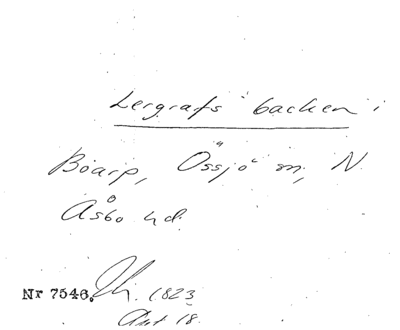 Lergrafs backen i
Böarp, Össjö sn, N.
Åsbo hd.
Nr 7546. 1823
Akt 18.